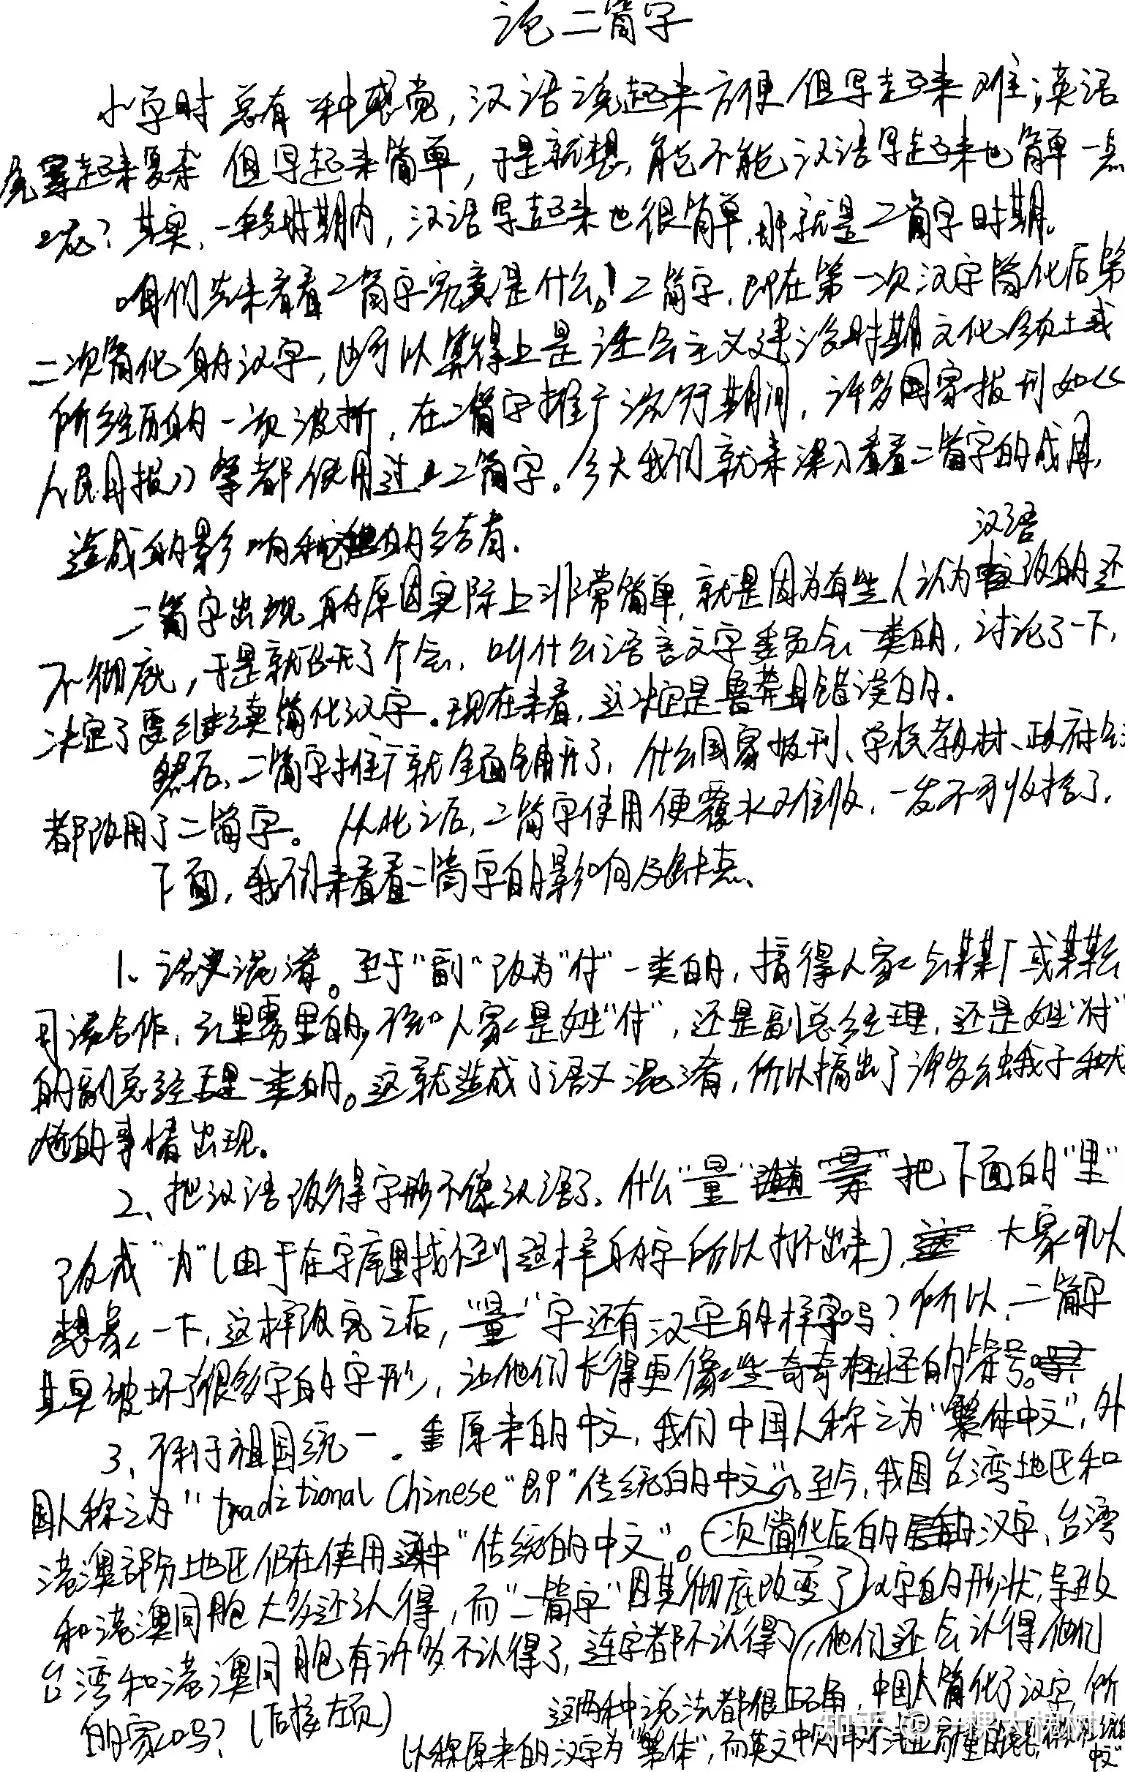 论二简字
小学时总有一种感觉,汉语说起来方便但写起来难;英语
起来复杂 但写起来简单,于是就想,能不能汉语写起来也简单一点
呢?其实,一段时期内,汉语写起来也很简单,那就是二简字时期。
咱们先来看看二简字究竟是什么!二简字,即在第一次汉字简化后第
二次简化的汉字,也可以算得上是社会主义建设时期文化领土或
所经历的一次波折,在二简字推广流行期间,许多国家报刊如《
人民日报》等都使用过二简字。今天我们就来深入看看二简字的成因,
造成的影响和它的结肴.
汉语
二简字出现的原因实际上非常简单,就是因为有些人认为改的还
不彻底,于是就召开了个会,叫什么语言文字委员会一类的,讨论了一下,
决定了要继续简化汉字。现在来看,这决定是鲁莽且错误的.
然后,二简字推广就全面铺开了,什么国家报刊、学校教材、政府
都改用了二简字。从此之后,二简字使用便覆水难收,一发不可收拾了.
下面,我们来看看二简字的影响及缺点.
1、语义混淆。至于"副"改为"付"一类的,搞得人家去某某厂或某某公
司谈合作,云里雾里的,不知人家是姓"付",还是副总经理,还是姓"付"
的副总经理一类的。这就造成了语义混淆,所以搞出了许多幺蛾子和尤
尬的事情出现.
2、把汉语改得字形不像汉语了、什么"量" 把下面的"里"
改成"力"(由于在字库里找不到这样的字所以打不出来), 大家可以
想象一下,这样改完之后,"量"字还有汉字的样子吗?所以,二简字
其实破坏了很多字的字形,让他们长得更像些奇奇怪怪的符号。
3、不利于祖国统一。原来的中文,我们中国人称之为"繁体中文",外
国人称之为"traditional Chinese"即"传统的中文"。至今,我国台湾地区和
港澳部分地区仍在使用"传统的中文"。一次简化后的汉字,台湾
和港澳同胞大多还认得,而"二简字"因其彻底改变了汉字的形状,导致
台湾和港澳同胞有许多不认得了,连字都不认得了,他们还会认得他们
的家吗?(后接左页)
这两种说法都很正确,中国人简化了汉字,所
以称原来的汉字为"繁体",而英文中
知乎 @一棵大槐树